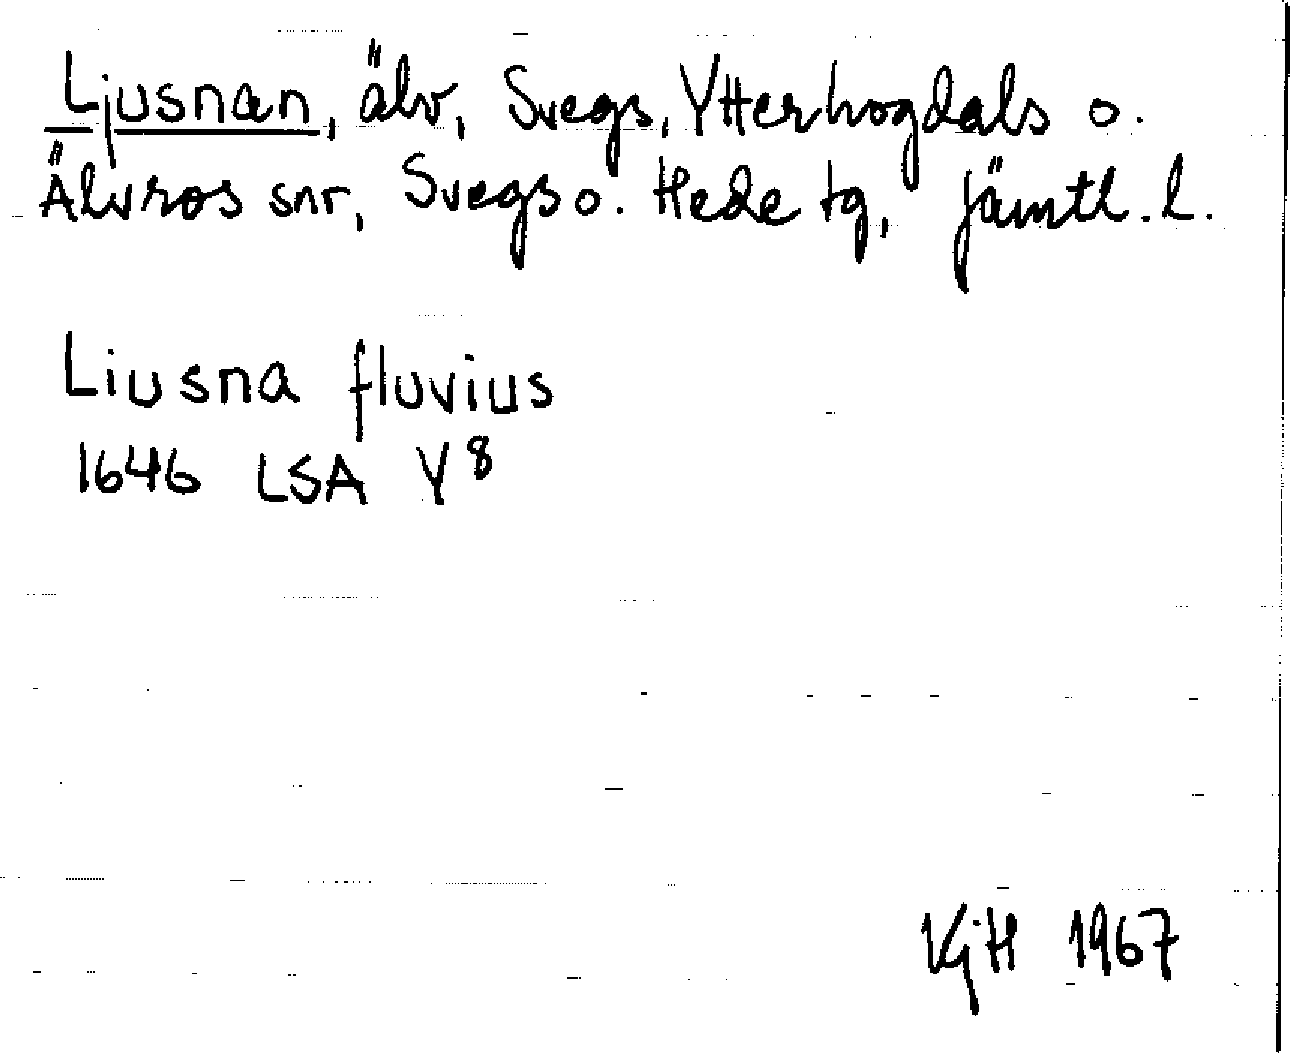 Ljusnan, älv, Svegs, Ytterhogdals o.
Älvros snr, Svegs o. Hede tg, Jämtl. l.
Liusna fluvius
1646 LSA Y⁸
KjH 1967